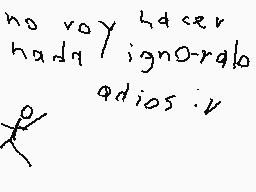 no voy hacer
nada ignoralo
adios :v